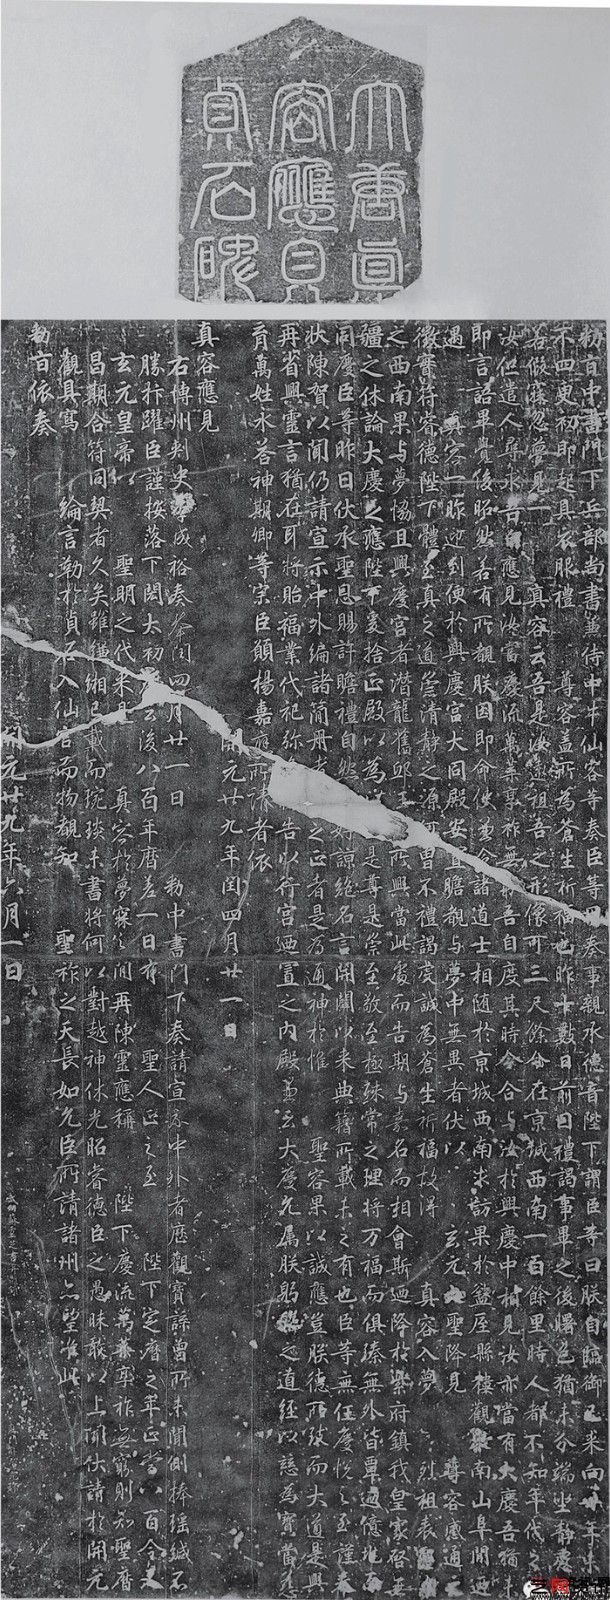 大唐真
容應見
貞石碑
勑旨中書門下兵部尚書兼侍中牛仙客等奏臣等因奏事親承德音陛下謂臣等曰朕自臨御已來向卅年未
不四更初即起具衣服禮 尊容蓋所為蒼生祈福也昨十數日前因禮謁事畢之後曙色猶未分端坐靜慮
若假寐忽夢見一 真容云吾是汝遠祖吾之形像可三尺餘今在京城西南一百餘里時人都不知年代之
汝但遣人尋求吾自應見汝當慶流萬葉享祚無窮吾自度其時今合与汝於興慶中相見汝亦當有大慶吾猶未
即言語畢覺後昭然若有所覩朕因即命使兼令諸道士相隨於京城西南求訪果於盩厔縣樓觀東南山阜間迺
遇 真容一昨迎到便於興慶宮大同殿安置瞻覩与夢中無異者伏以 玄元大聖降見 尊容感通之
徵實符睿德陛下體至真之道崇清靜之源曾不禮謁虔誠為蒼生祈福故得 真容入夢 烈祖表靈
之西南果与夢協且興慶宮者潛龍舊邸王所興當此處而告期与嘉名而相會斯迺降於紫府鎮我皇家啓無
疆之休論大慶之應陛下爰捨正殿以為是尊是崇至敬至極殊常之理將万福而俱臻無外皆覃迺億兆而
同慶臣等昨日伏承聖恩賜許瞻禮自然相好諒絕名言開闢以來典籍所載未之有也臣等無任慶悅之至謹奉
狀陳賀以聞仍請宣示中外編諸簡冊者之正者是為通神於惟 聖容果以誠應豈朕德所致而大道是興
再省興靈言猶在耳將貽福業代祀弥告以行宮迺置之內殿兼云大慶允屬朕躬敬之道經以慈為寶當
育萬姓永荅神期卿等宗臣願揚嘉應所請者依
開元廿九年閏四月廿一日
真容應見
右博州刺史李成裕奏奉閏四月廿一日 勑中書門下奏請宣示中外者應觀寶蘇曾所未聞側捧瑶緘不
勝抃躍臣謹按落下閎太初云後八百年曆差一日有 聖人正之至 陛下定曆之年正當八百今又
玄元皇帝以 聖明之代來是真容於夢寐之間再陳靈應稱 陛下慶流萬葉享祚無窮則知聖曆
昌期合符同契者久矣雖縑緗已載而琬琰未書將何以對越神休光昭睿德臣之愚昧敢以上聞伏請於開元
觀具寫 綸言勒於貞石入仙宮而物覩知 聖祚之天長如允臣所請諸州亦望准此
勑旨依奏
開元廿九年六月一日